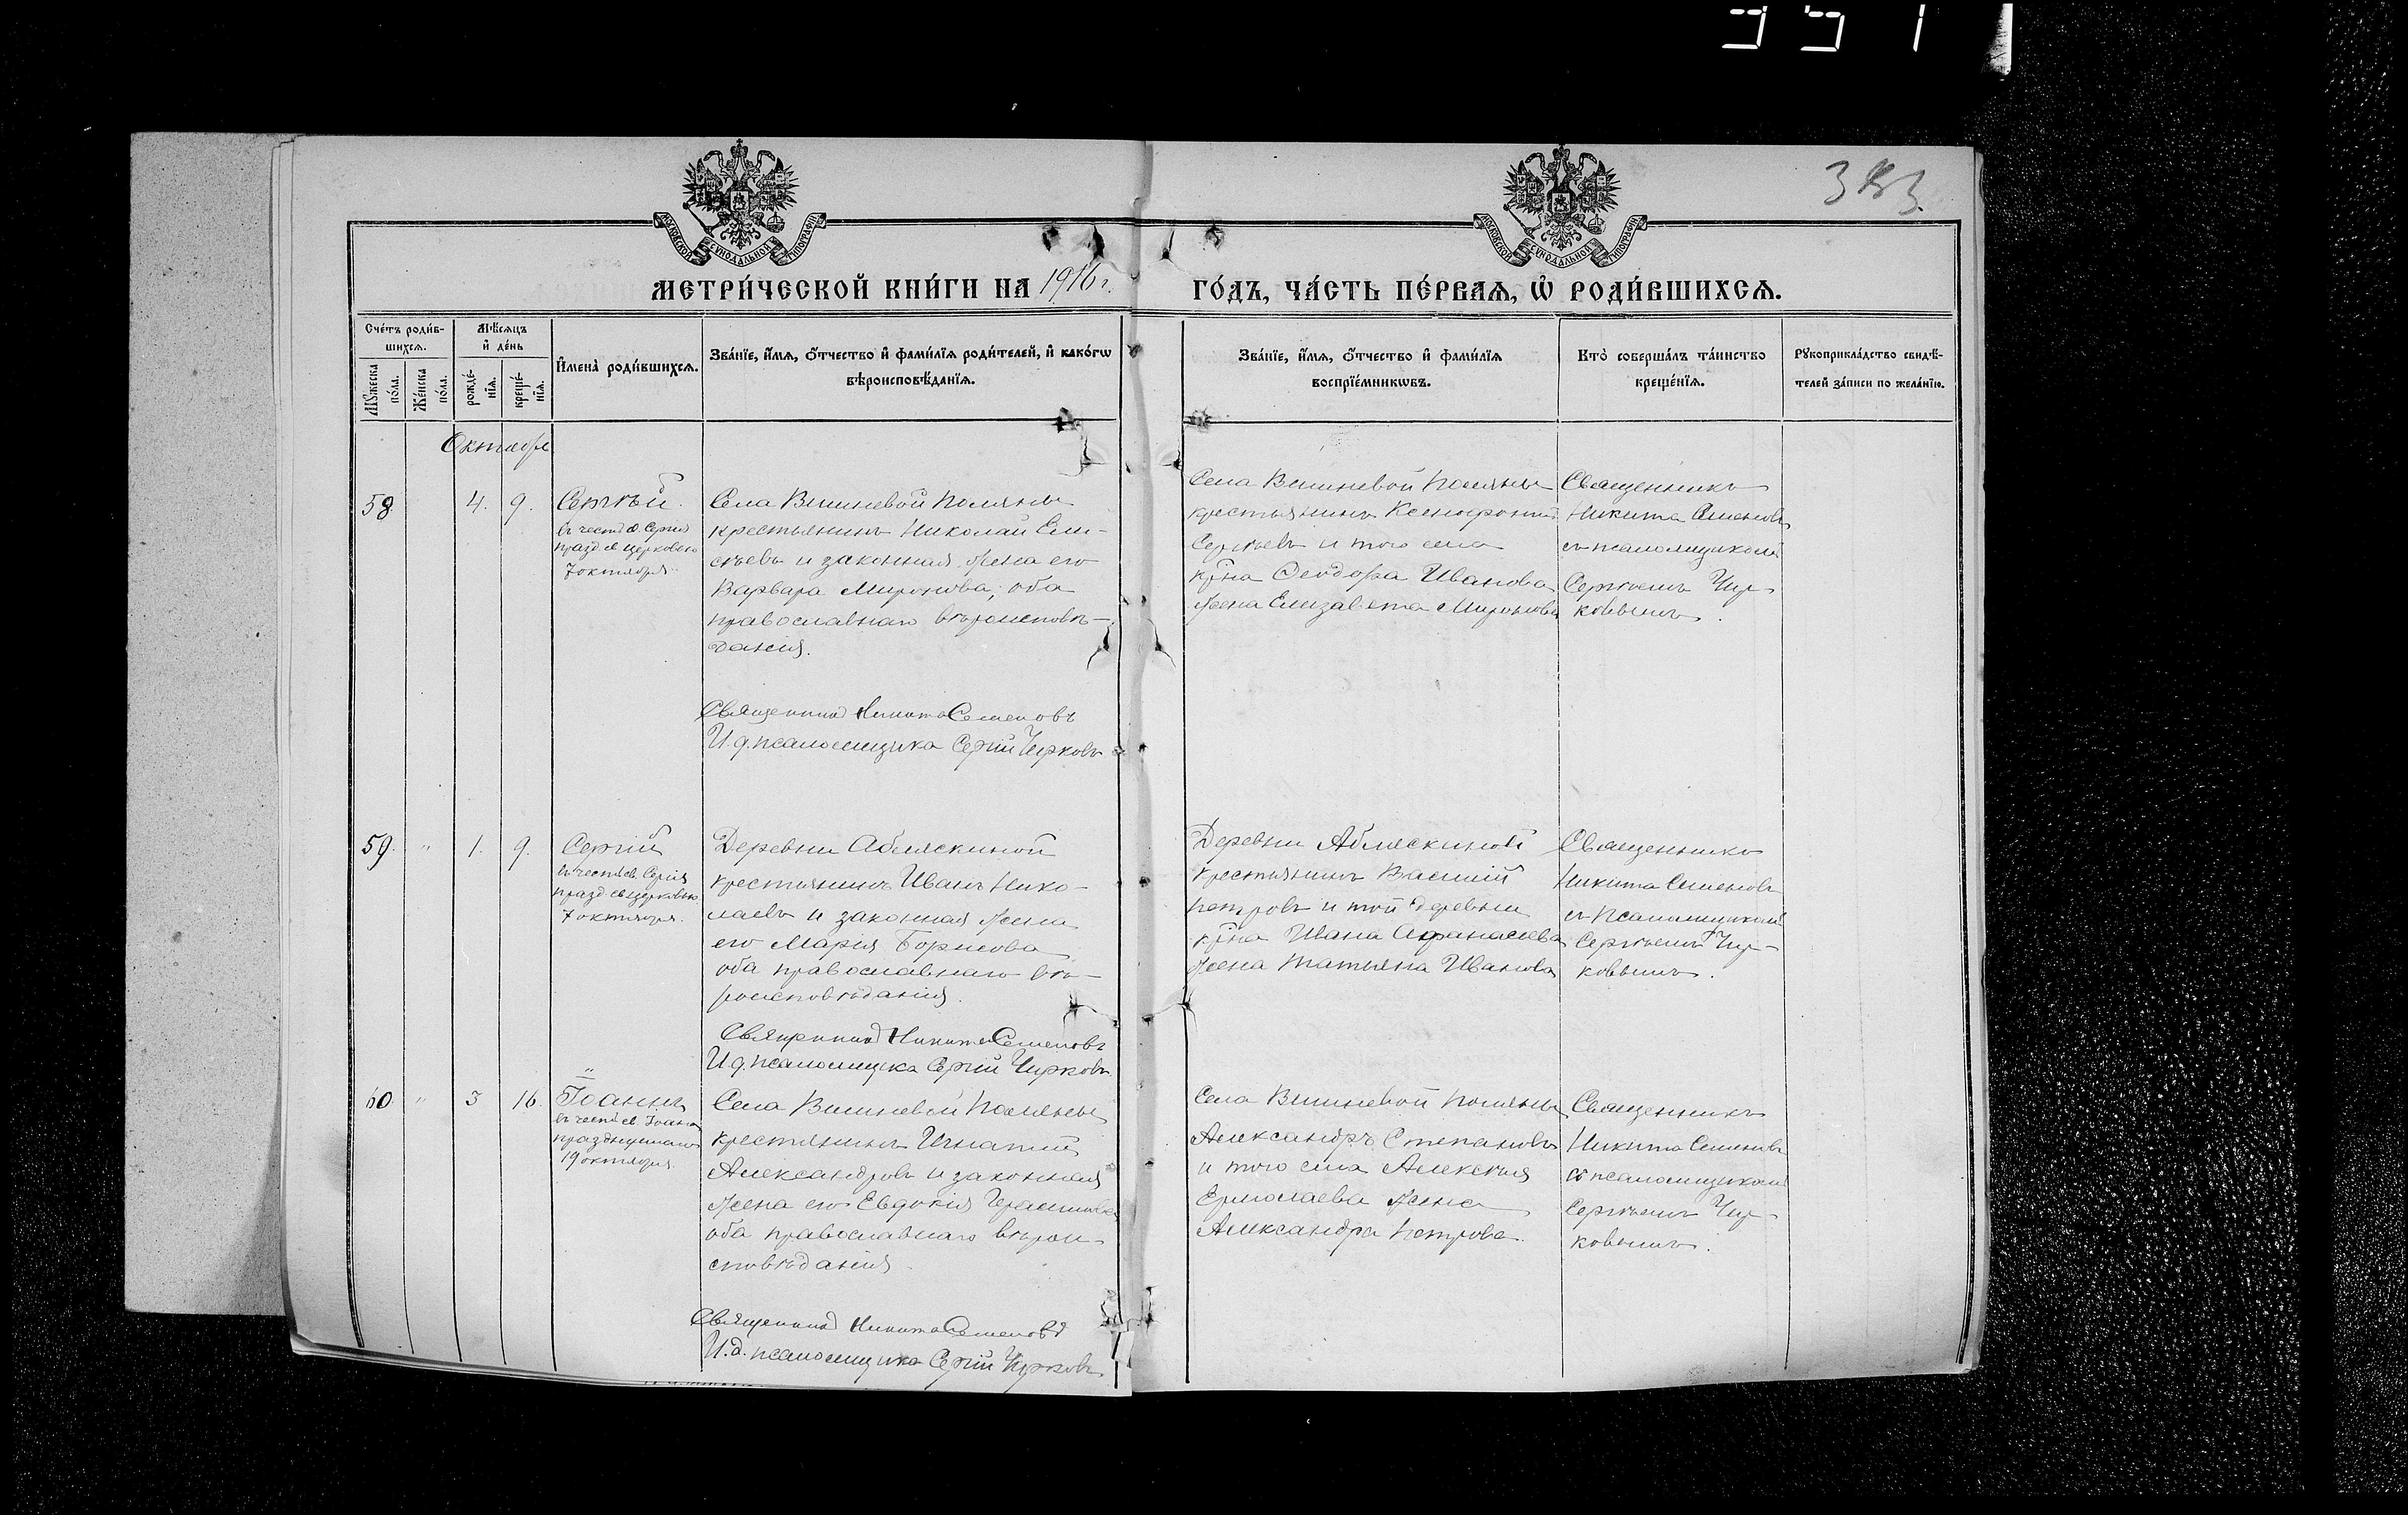 351
383
МОСКОВСКОЙ СУНОДАЛЬНОЙ ТИПОГРАФІИ
МОСКОВСКОЙ СУНОДАЛЬНОЙ ТИПОГРАФІИ
МЕТРИ́ЧЕСКОЙ КНИ́ГИ НА 1916 г.
ГО́ДЪ, ЧА́СТЬ ПЕ́РВАѦ, Ѡ҆ РОДИ́ВШИХСѦ.
Сче́тъ роди́в-
шихсѧ.
Мꙋ́жеска
по́ла.
Же́нска
по́ла.
Мѣ́сѧцъ
и҆ де́нь
рожде́-
нїѧ.
креще́-
нїѧ.
И҆мена̀ роди́вшихсѧ.
Зва́нїе, и҆́мѧ, ѻ҆́тчество и҆ фамі́лїѧ роди́телей, и҆ како́гѡ
вѣроисповѣ́данїѧ.
Зва́нїе, и҆́мѧ, ѻ҆́тчество и҆ фамі́лїѧ
воспрїе́мникѡвъ.
Кто̀ соверша́лъ та́инство
креще́нїѧ.
Рꙋкоприкла́дство свидѣ́-
телей за́писи по жела́нїю.
Октябрь
58
4. 9.
Сергѣй.
въ честь св. Сергія
празд. св. церковью
7 октября.
Села Вишневой Поляны
крестьянинъ Николай Ели-
сѣевъ и законная жена его
Варвара Миронова, оба
православнаго вѣроисповѣ-
данія.
Священникъ Никита Семеновъ
И. д. псаломщика Сергій Чирковъ
Села Вишневой Поляны
крестьянинъ Ксенофонтъ
Сергѣевъ и того села
кр̃на Ѳеодора Иванова
жена Елизавета Миронова
Священникъ
Никита Семеновъ
съ псаломщикомъ
Сергѣемъ Чир-
ковымъ.
59. " 1. 9.
Сергій
въ честь св. Сергія
празд. св. церковью
7 октября.
Деревни Абляскиной
крестьянинъ Иванъ Нико-
лаевъ и законная жена
его Марія Борисова
оба православнаго вѣ-
роисповѣданія.
Священникъ Никита Семеновъ
И. д. псаломщика Сергій Чирковъ
Деревни Абляскиной
крестьянинъ Василій
Петровъ и той деревни
кр̃на Ивана Афанасьева
жена Татьяна Иванова
Священникъ
Никита Семеновъ
съ псаломщикомъ
Сергѣемъ Чир-
ковымъ.
60 " 3 16.
Іоаннъ
въ честь св. Іоанна
празднуемаго
19 октября.
Села Вишневой Поляны
крестьянинъ Игнатій
Александровъ и законная
жена его Евдокія Герасимова
оба православнаго вѣрои-
сповѣданія
Священникъ Никита Семеновъ
И. д. псаломщика Сергій Чирковъ
Села Вишневой Поляны
Александръ Степановъ
и того села Алексѣя
Ермолаева жена
Александра Петрова.
Священникъ
Никита Семеновъ
съ псаломщикомъ
Сергѣемъ Чир-
ковымъ.